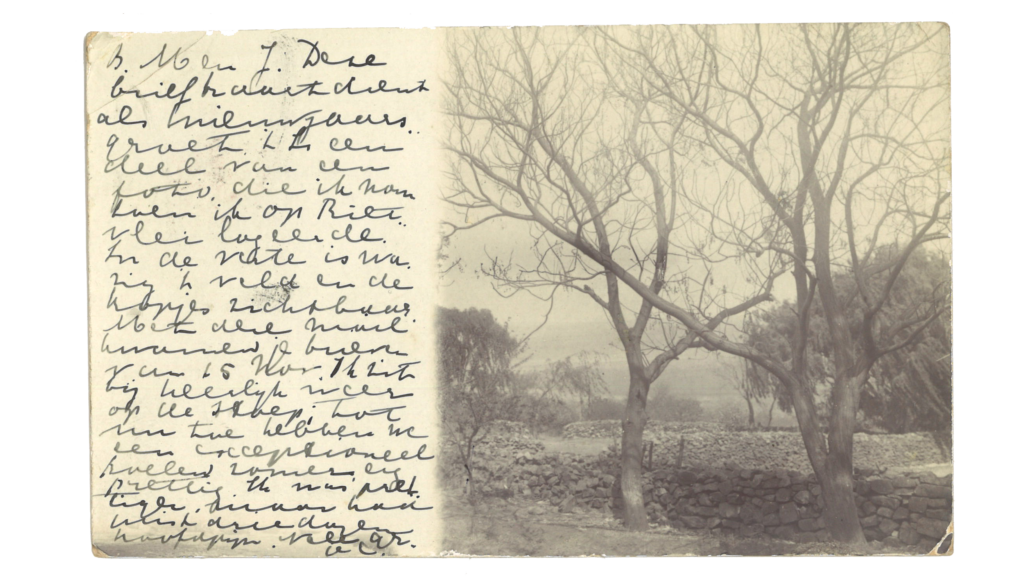 B. M en J. Deze
briefkaart dient
als nieuwjaars
groet. 't Is een
deel van een
foto, die ik nam
toen ik op Riet
vlei logeerde.
In de verte is wa
zig 't veld en de
kopjes zichtbaar.
Met deze mail
kwamen je brieven
van 15 Nov. Ik zit
bij heerlijk weer
op de stoep; tot
nu toe hebben we
een exceptioneel
koelen zomer, erg
prettig. Ik was pret
tiger, maar had
juist drie dagen
hoofdpijn. Vele gr.